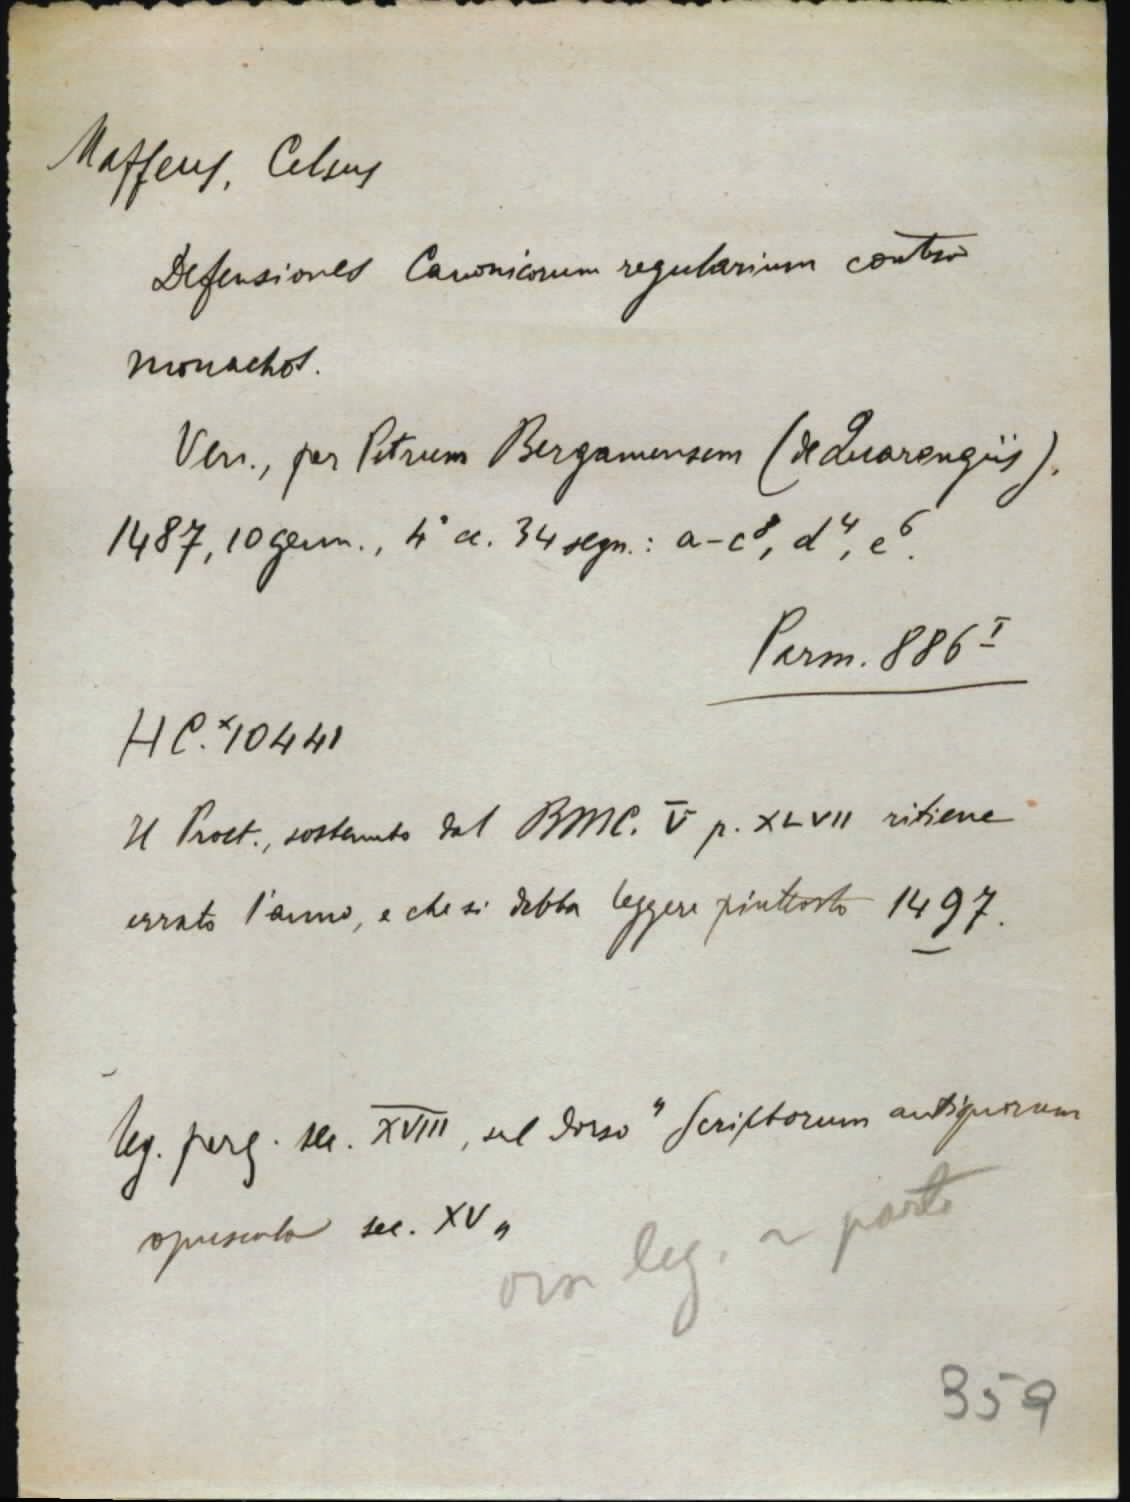 Maffeus, Celsus
Defensiones Canonicorum regularium contra
monachos.
Ven., per Petrum Bergamensem (de Quarengiis),
1487, 10 genn., 4° cc. 34 segn.: a-c⁸, d⁴, e⁶.
Parm. 886 I
HC.ˣ10441
Il Proct., sostenuto dal BMC. V p. XLVII ritiene
errato l'anno, e che si debba leggere piuttosto 1497.
leg. perg. sec. XVIII, sul dorso "Scriptorum antiquorum
opuscula sec. XV"
ora leg. a parte
359